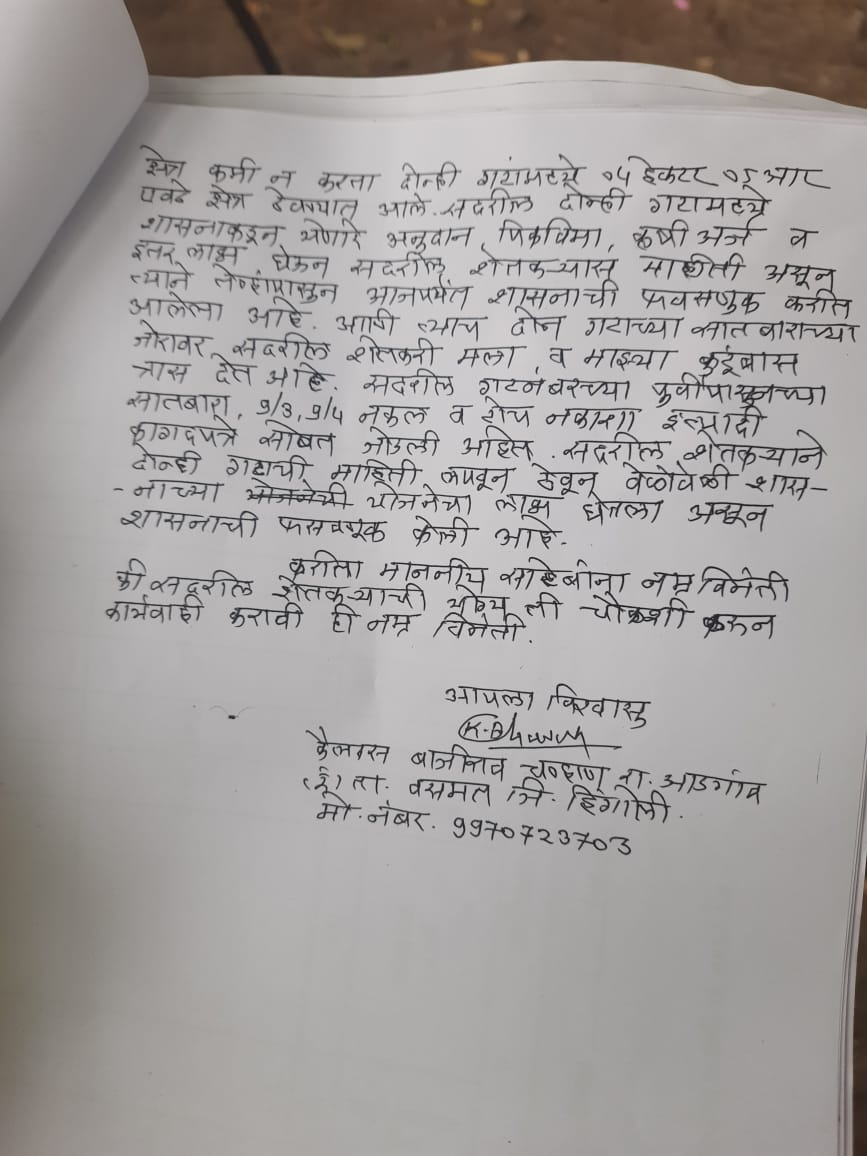 क्षेत्र कमी न करता दोन्ही गटांमध्ये ०५ हेक्टर ०६ आर
एवढे क्षेत्र ठेवण्यात आले. सदरील दोन्ही गटामध्ये
शासनाकडून येणारे अनुदान, पिकविमा, कृषी अर्ज व
इतर लाभ घेऊन सदरील शेतकऱ्यास माहीती असून
त्याने तेव्हांपासून आजपर्यंत शासनाची फवसणुक करीत
आलेला आहे. आणी त्याच दोन गटाच्या सातबाराच्या
जोरावर सदरील शेतकरी मला, व माझ्या कुटूंबास
त्रास देत आहे. सदरील गटनंबरच्या पुर्वीपासूनच्या
सातबारा, 9/3, 9/4 नकल व शेप नकाशा इत्यादी
कागदपत्रे सोबत जोडली आहेत. सदरील शेतकऱ्याने
दोन्ही गटाची माहिती लपवून ठेवून वेळोवेळी शास-
-नाच्या योजनेची योजनेचा लाभ घेतला असून
शासनाची फसवणूक केली आहे.
करीता माननीय साहेबांना नम्र विनंती
की सदरील शेतकऱ्याची योग्य ती चौकशी करून
कार्यवाही करावी ही नम्र विनंती.
आपला विश्वासु
कैलास बाजीराव चव्हाण रा. आडगांव
(रं) ता. वसमत जि. हिंगोली.
मो. नंबर. 9970723703